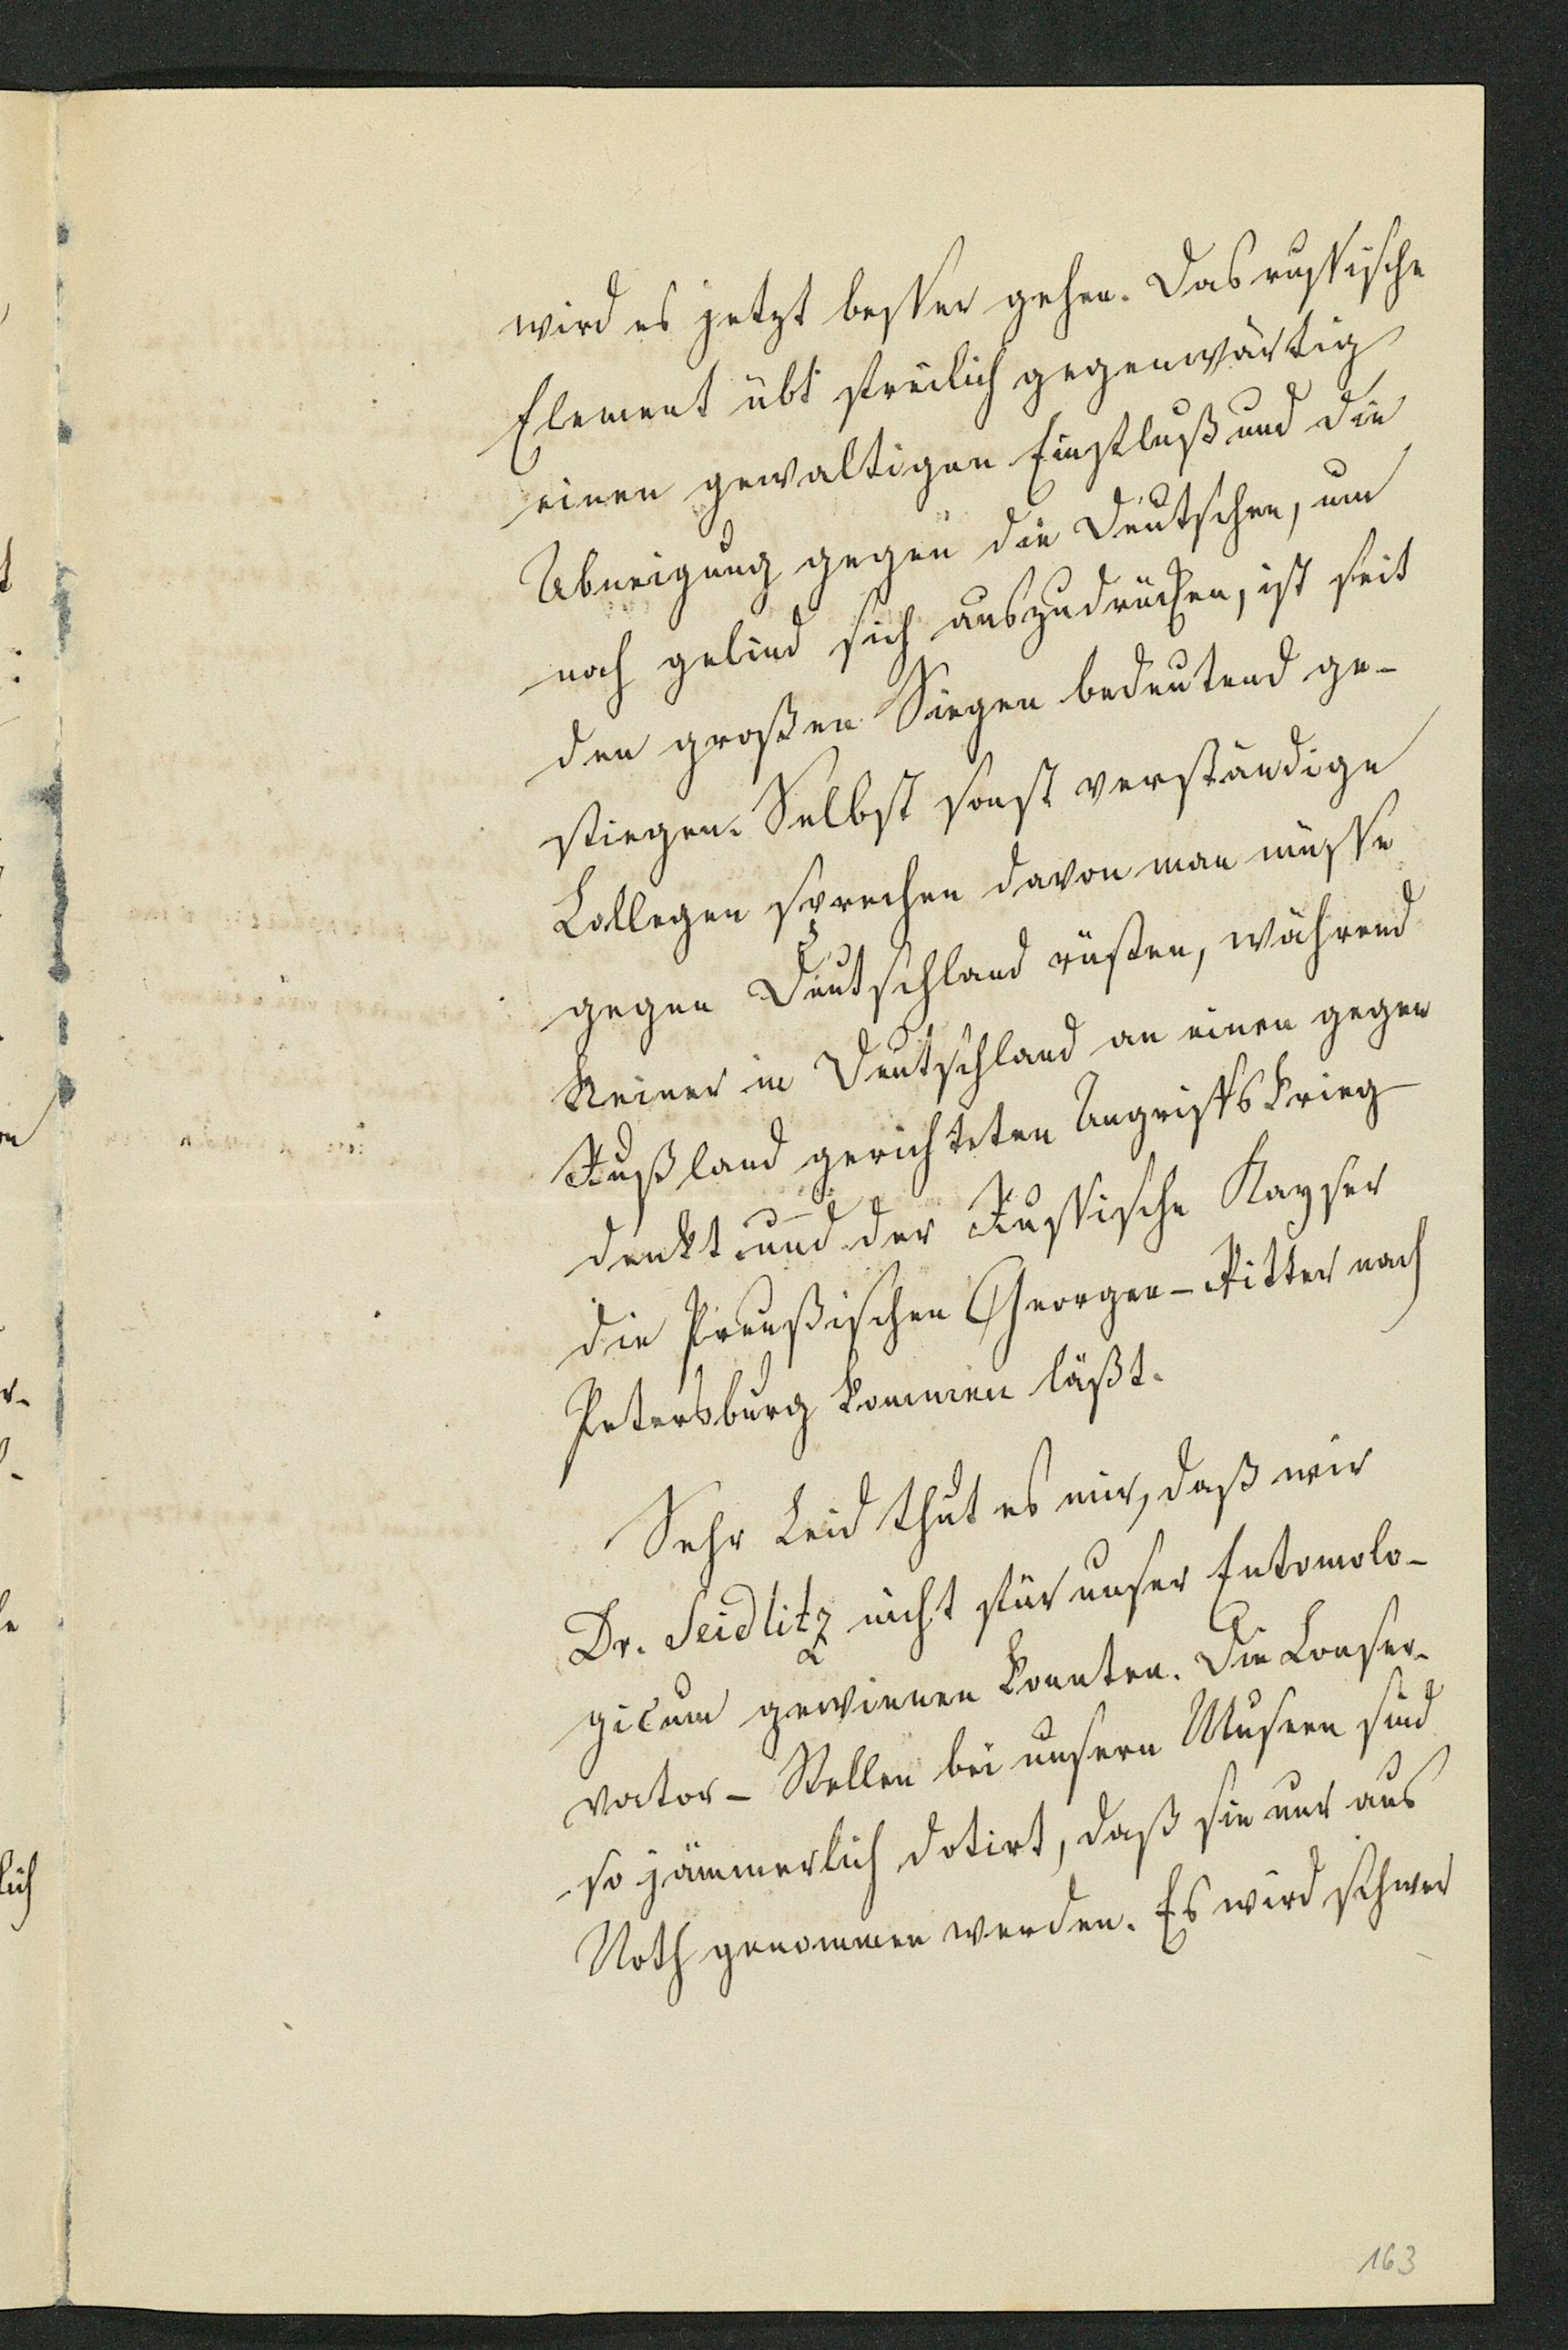 wird es jetzt besser gehen. Das russische
Element übt freilich gegenwärtig
einen gewaltigen Einfluß und die
Abneigung gegen die Deutschen, um
noch gelind sich auszudrücken, ist seit
den großen Siegen bedeutend ge-
stiegen. Selbst sonst verständige
Collegen sprechen davon man müsse
gegen Deutschland rüsten, während
Keiner in Deutschland an einen gegen
Rußland gerichteten Angriffskrieg
denkt und der Russische Kayser
die Preußischen Georgen-Ritter nach
Petersburg kommen läßt.
Sehr Leid thut es mir, daß wir
Dr. Seidlitz nicht für unser Entomolo-
gicum gewinnen konnten. Die Conser-
vator-Stellen bei unsern Museen sind
so jämmerlich dotirt, daß sie nur aus
Noth genommen werden. Es wird schwer
163